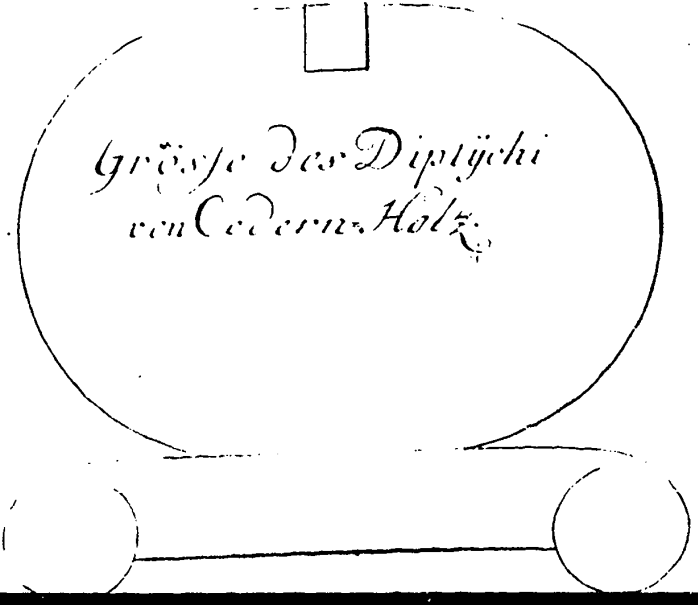 Grösse des Diptÿchi
von Cedern-Holz.